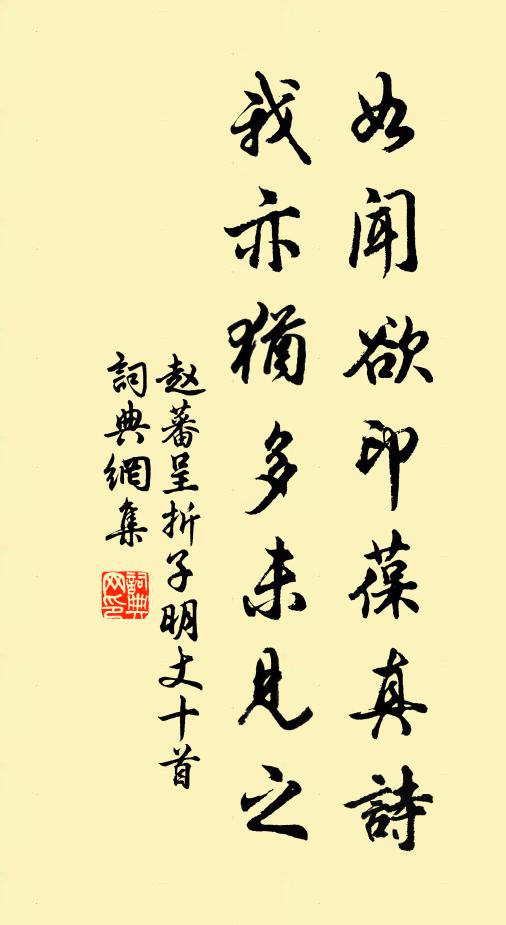 如聞欲印葆真詩
我亦猶多未見之
赵蕃呈折子明丈十首
詞典網集
詞典网印